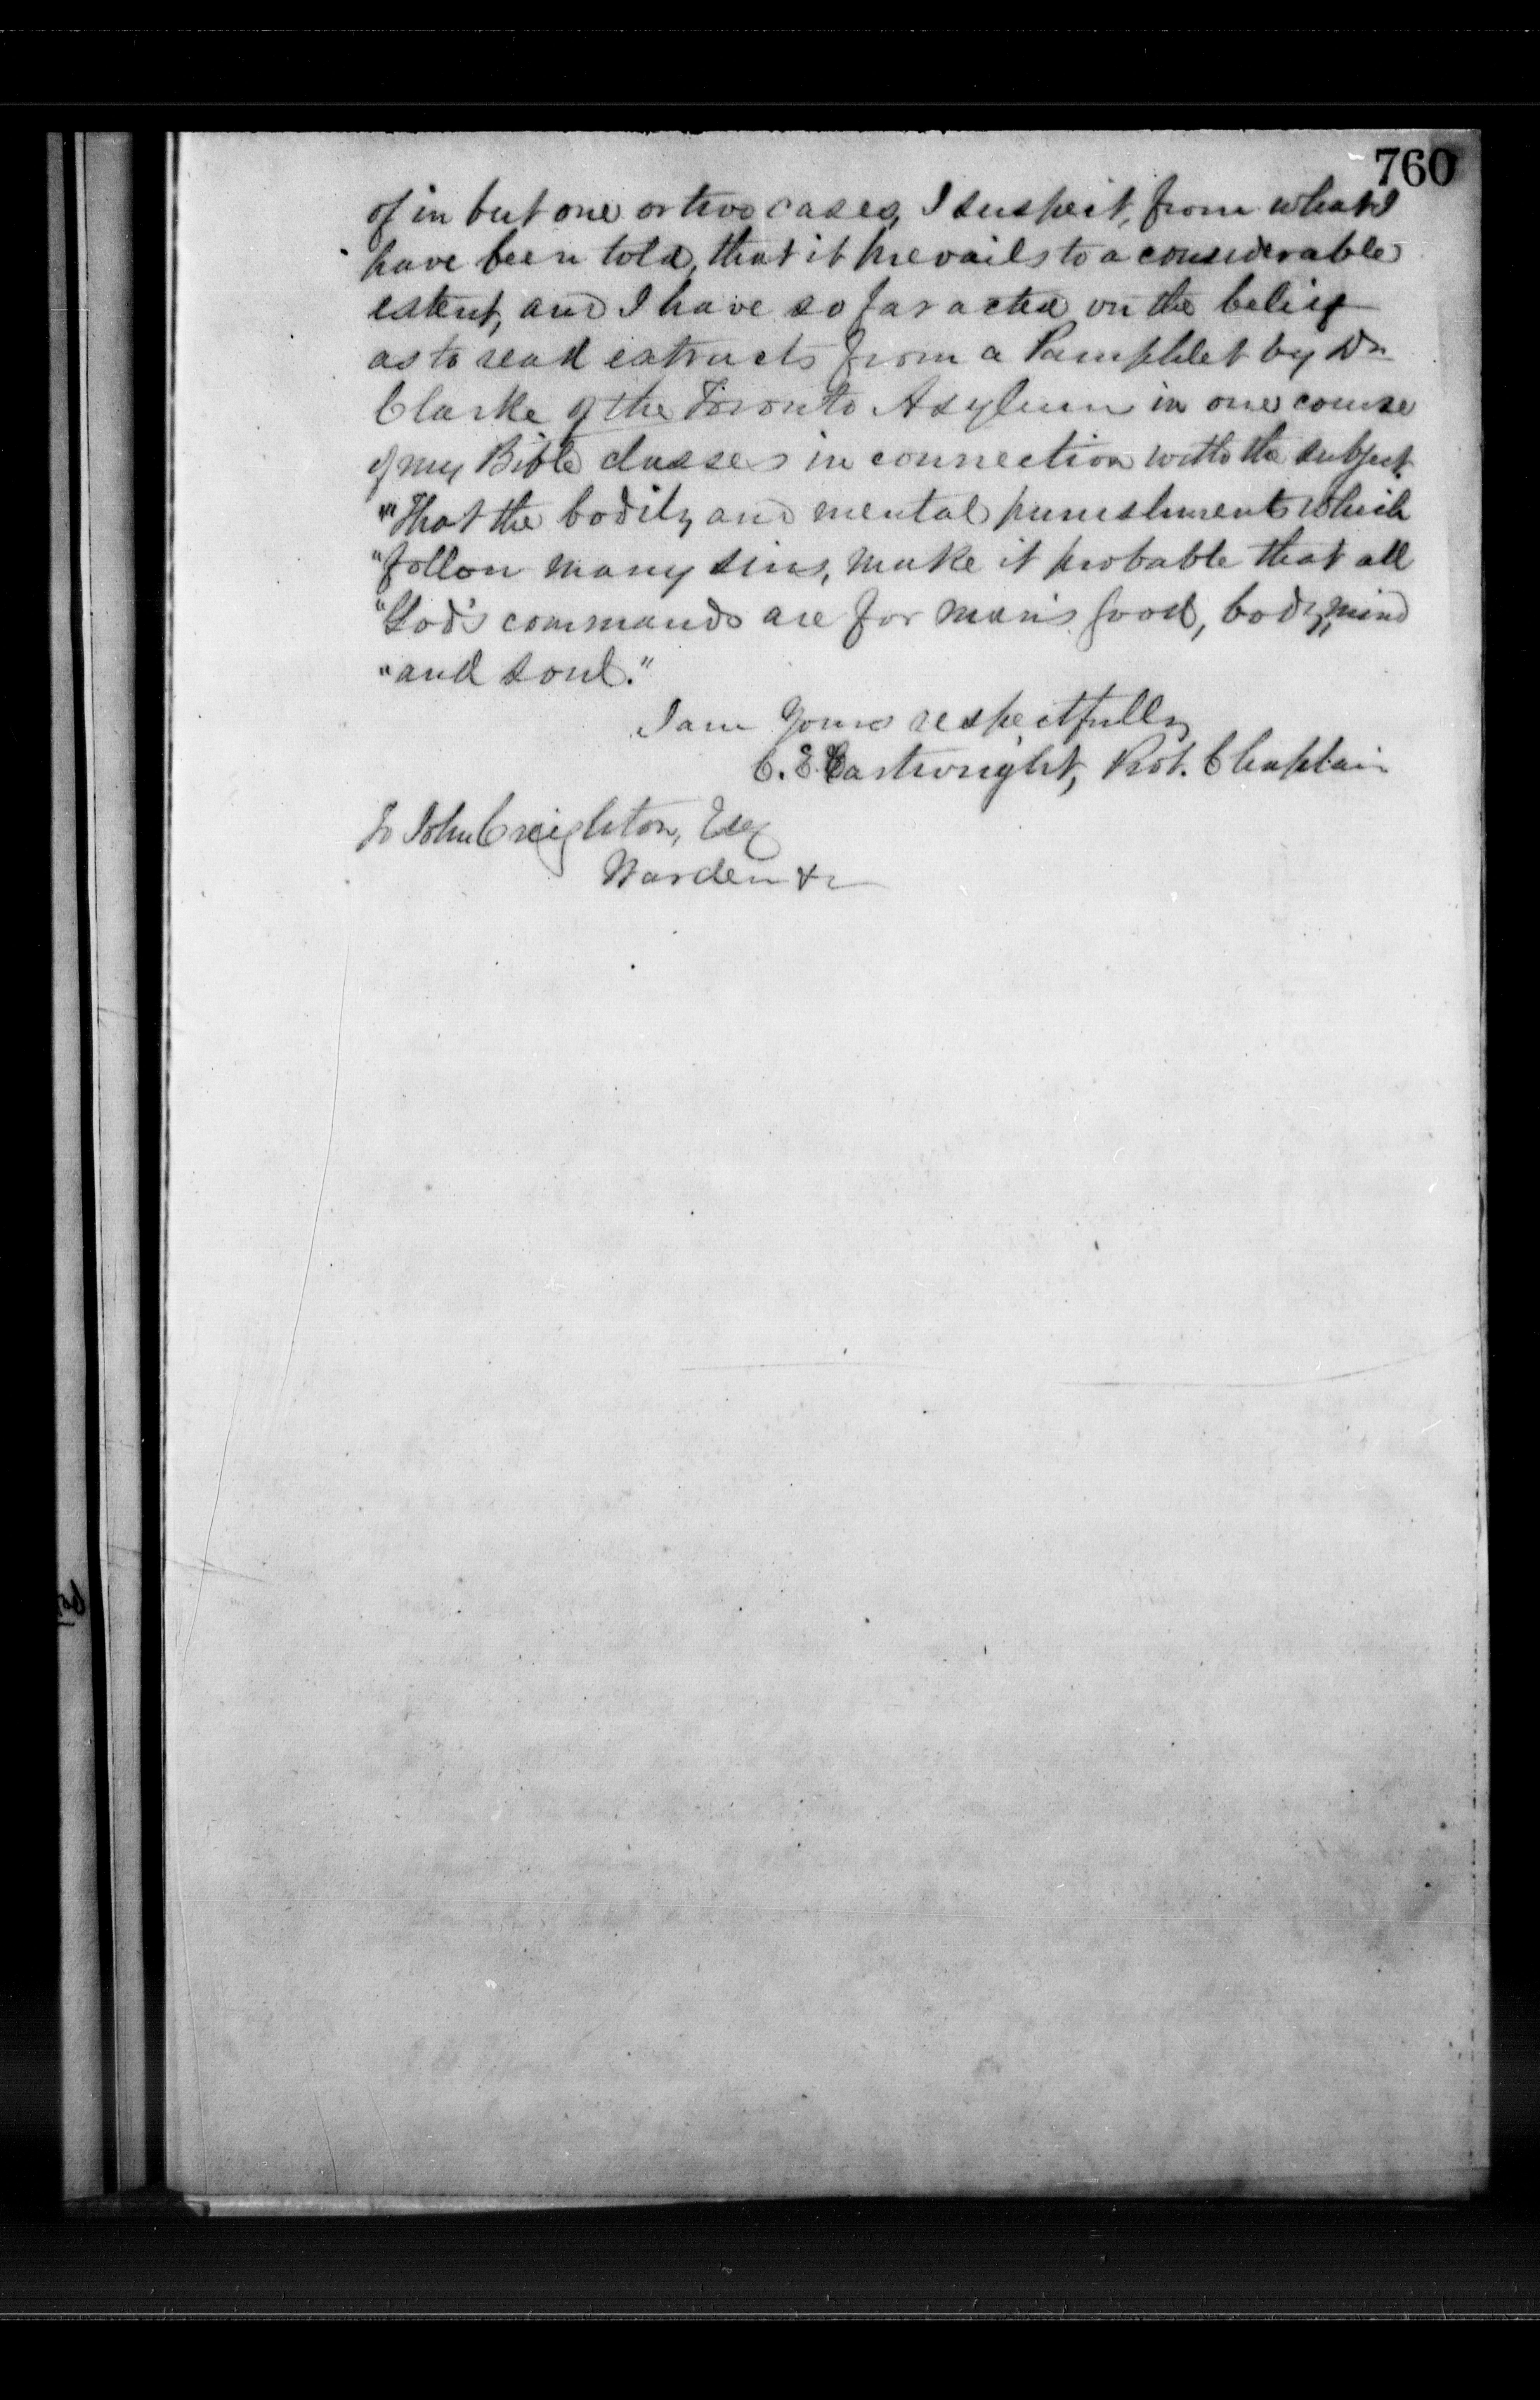 760
of in but one or two cases, I suspect, from what I
have been told, that it prevails to a considerable
extent, and I have so far acted on the belief
as to read extracts from a Pamphlet by Dr
Clarke of the Toronto Asylum in one course
of my Bible classes in connection with the subject.
"That the bodily and mental punishments which
"follow many sins, make it probable that all
"God's commands are for man's good, body, mind
"and soul."
I am Yours respectfully
C. E. Cartwright, Prot. Chaplain
To John Creighton, Esq
Warden &c